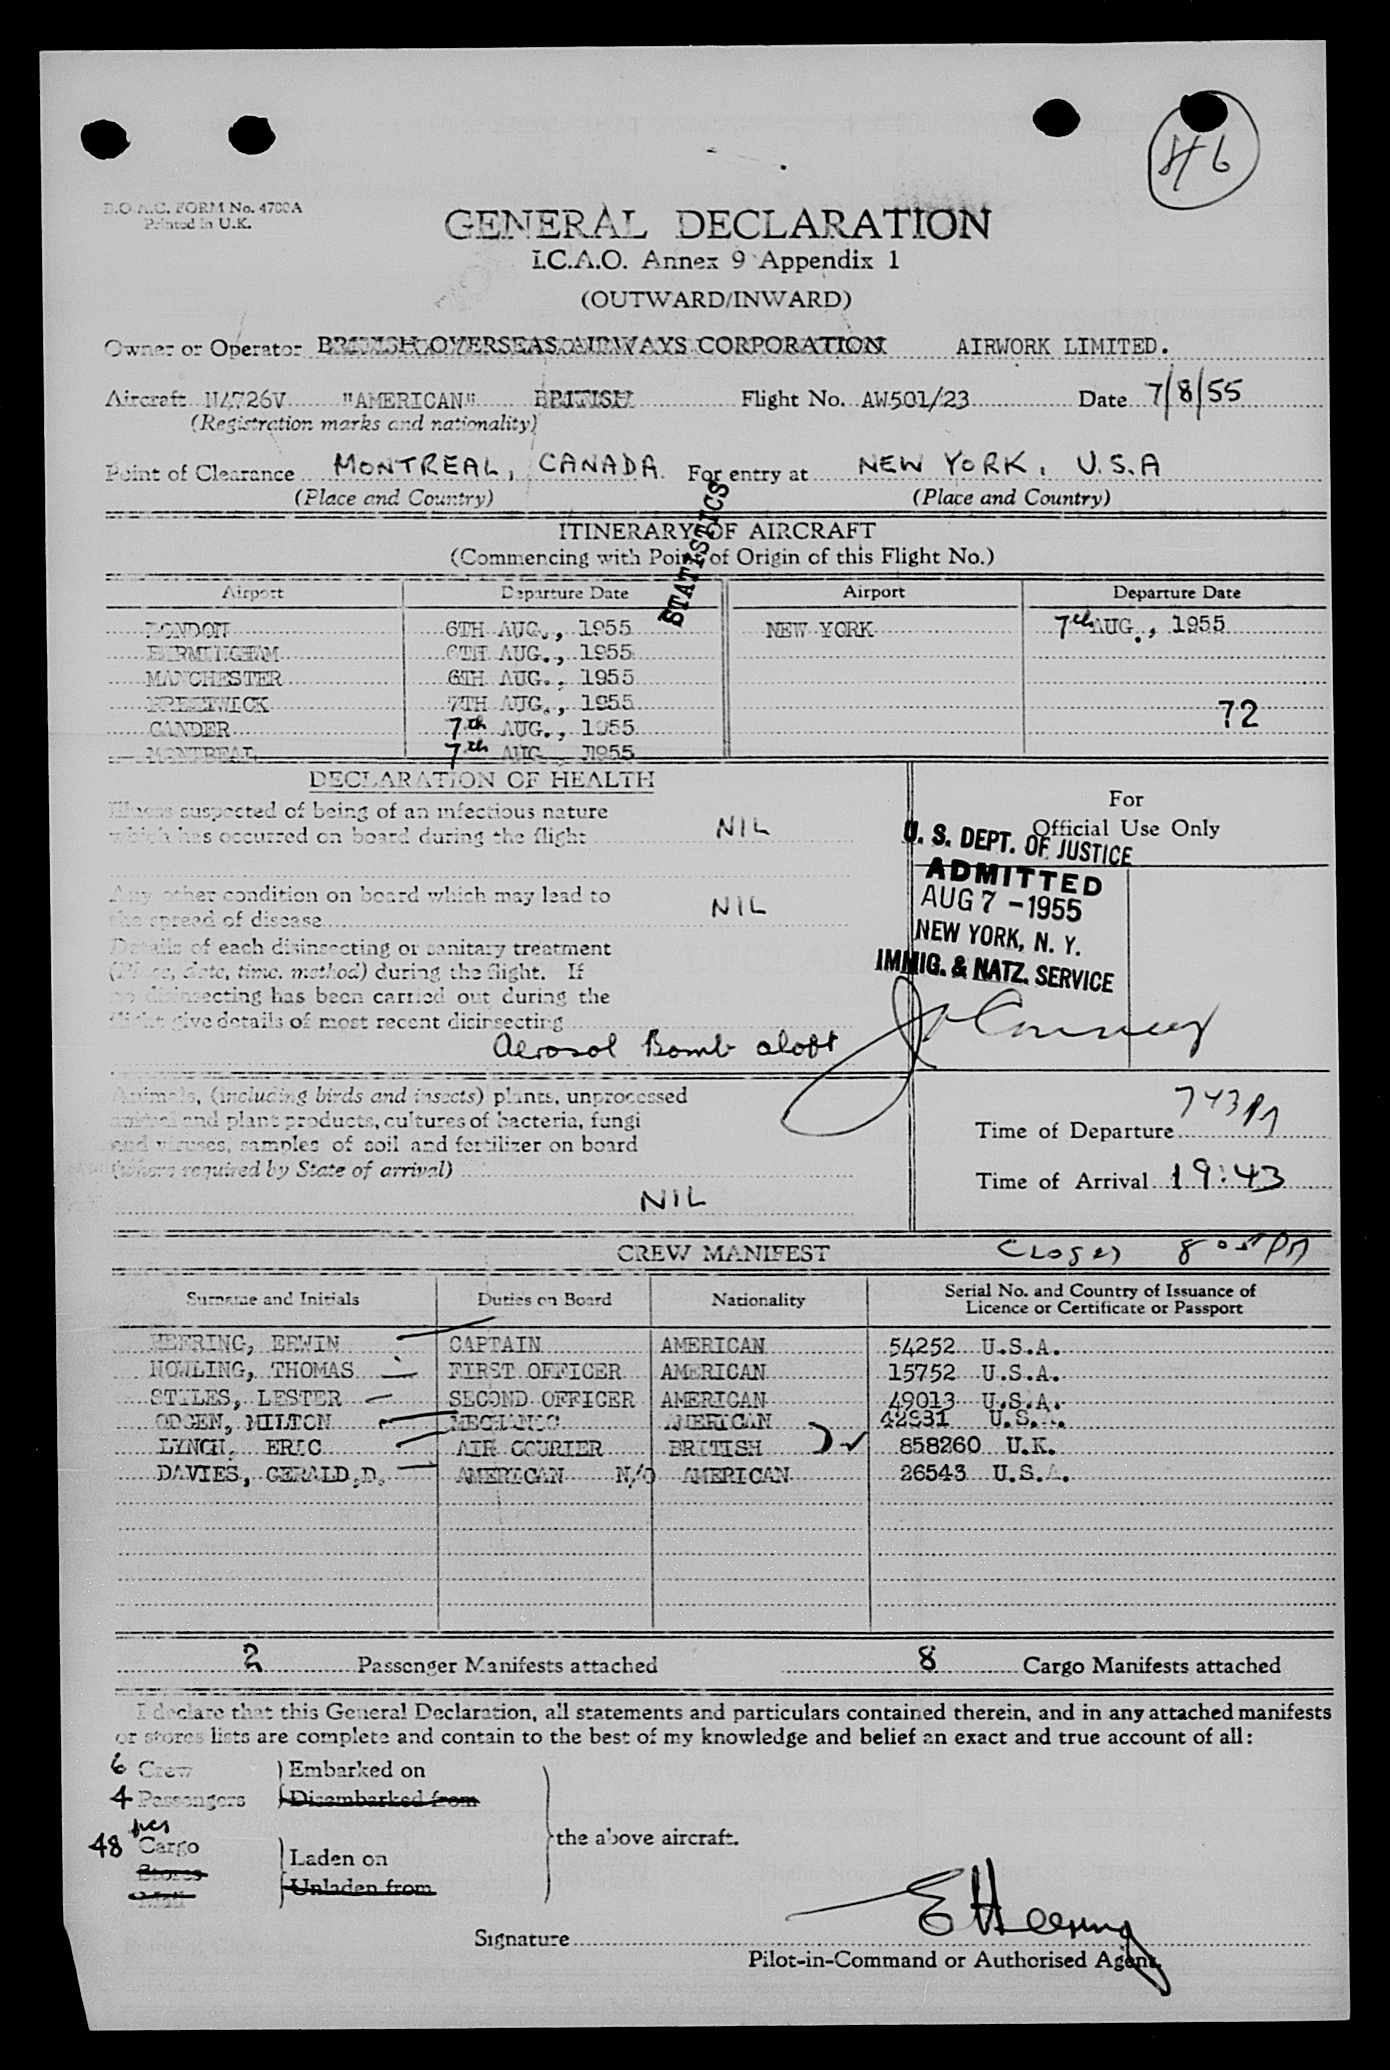 46
B.O.A.C. FORM No. 4700A
Printed in U.K.
GENERAL DECLARATION
I.C.A.O. Annex 9 Appendix 1
(OUTWARD/INWARD)
Owner or Operator BRITISH OVERSEAS AIRWAYS CORPORATION AIRWORK LIMITED.
Aircraft N4726V "AMERICAN" BRITISH Flight No. AW501/23 Date 7/8/55
(Registration marks and nationality)
Point of Clearance MONTREAL, CANADA. For entry at NEW YORK, U.S.A
(Place and Country) (Place and Country)
STATISTICS
ITINERARY OF AIRCRAFT
(Commencing with Point of Origin of this Flight No.)
Airport Departure Date Airport Departure Date
LONDON 6TH AUG., 1955 NEW YORK 7th AUG., 1955
BIRMINGHAM 6TH AUG., 1955
MANCHESTER 6TH AUG., 1955
PRESTWICK 7TH AUG., 1955 72
GANDER 7th AUG., 1955
MONTREAL 7th AUG 1955
DECLARATION OF HEALTH
Illness suspected of being of an infectious nature
which has occurred on board during the flight NIL
Any other condition on board which may lead to
the spread of disease NIL
Details of each disinsecting or sanitary treatment
(Place, date, time, method) during the flight. If
no disinsecting has been carried out during the
flight give details of most recent disinsecting
Aerosol Bomb aloft
For
Official Use Only
U. S. DEPT. OF JUSTICE
ADMITTED
AUG 7 - 1955
NEW YORK, N. Y.
IMMIG. & NATZ. SERVICE
Animals, (including birds and insects) plants, unprocessed
animal and plant products, cultures of bacteria, fungi
and viruses, samples of soil and fertilizer on board
(where required by State of arrival)
NIL
Time of Departure 743 PM
Time of Arrival 19:43
CREW MANIFEST Closed 8 05 PM
Surname and Initials Duties on Board Nationality Serial No. and Country of Issuance of
Licence or Certificate or Passport
HEERING, ERWIN CAPTAIN AMERICAN 54252 U.S.A.
NOWLING, THOMAS FIRST OFFICER AMERICAN 15752 U.S.A.
STILES, LESTER SECOND OFFICER AMERICAN 49013 U.S.A.
ODGEN, MILTON MECHANIC AMERICAN 42831 U.S.A.
LYNCH, ERIC AIR COURIER BRITISH 858260 U.K.
DAVIES, GERALD.D. AMERICAN N/O AMERICAN 26543 U.S.A.
2 Passenger Manifests attached 8 Cargo Manifests attached
I declare that this General Declaration, all statements and particulars contained therein, and in any attached manifests
or stores lists are complete and contain to the best of my knowledge and belief an exact and true account of all:
6 Crew Embarked on
4 Passengers Disembarked from
the above aircraft.
pcs
48 Cargo Laden on
Stores Unladen from
Mail
Signature EHeering
Pilot-in-Command or Authorised Agent.